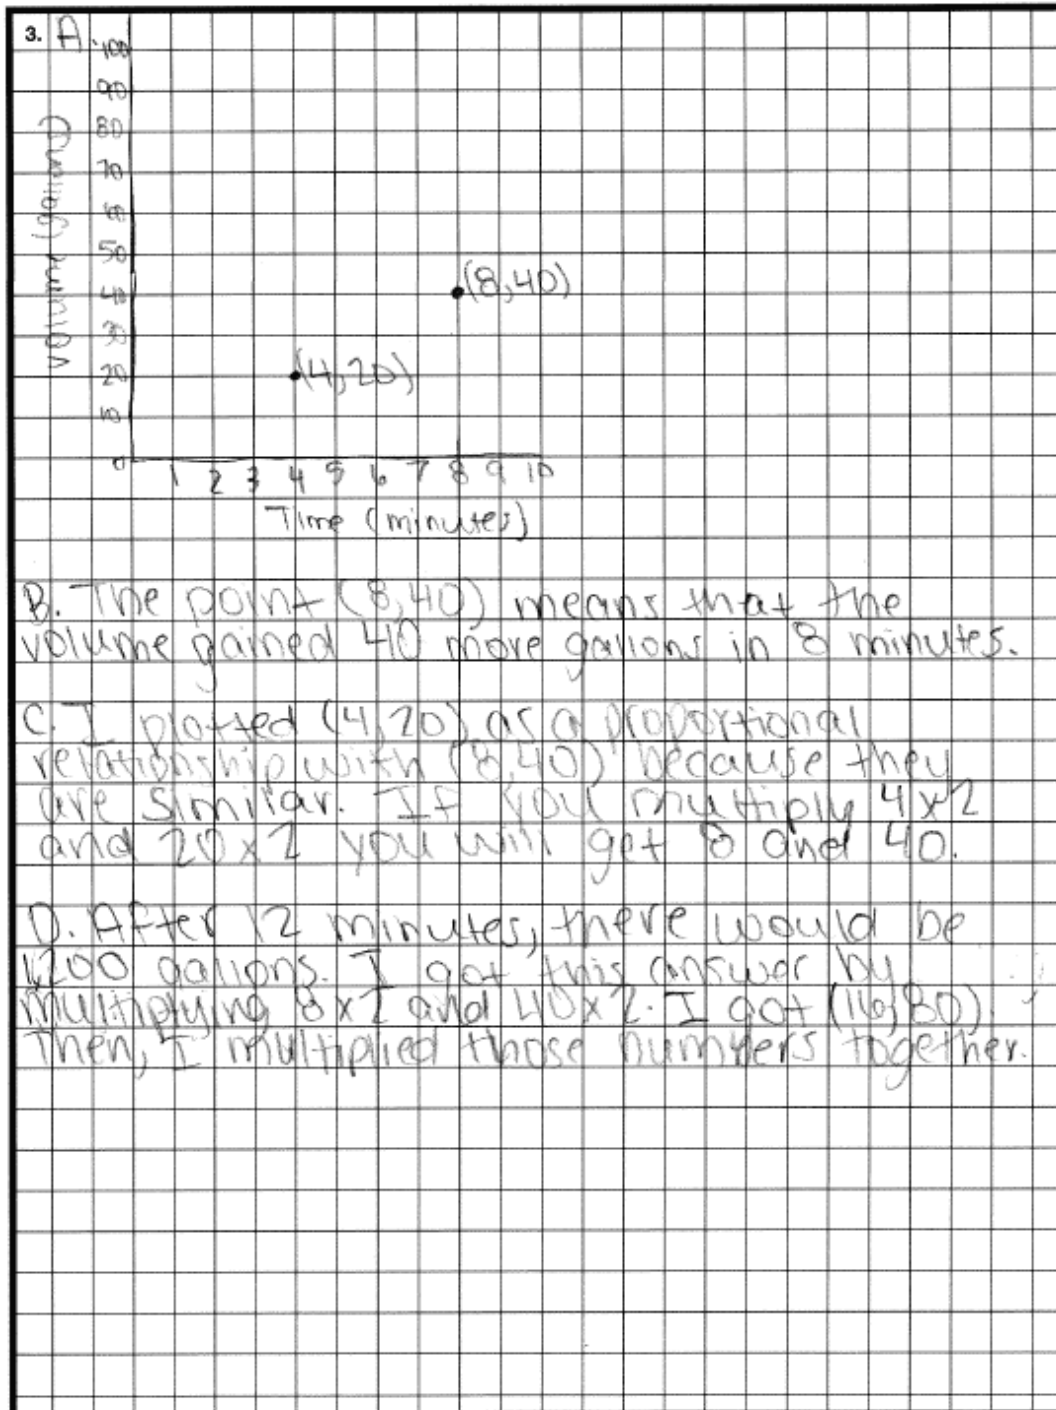 3. A
100
90
80
70
60
50
40
30
20
10
0
Volume (gallons)
(8,40)
(4,20)
1 2 3 4 5 6 7 8 9 10
Time (minutes)
B. The point (8,40) means that the
volume gained 40 more gallons in 8 minutes.
C. I plotted (4,20) as a proportional
relationship with (8,40) because they
are similar. If you multiply 4x2
and 20x2 you will get 8 and 40.
D. After 12 minutes, there would be
1,200 gallons. I got this answer by
multiplying 8x2 and 40x2. I got (16,80).
Then, I multiplied those numbers together.